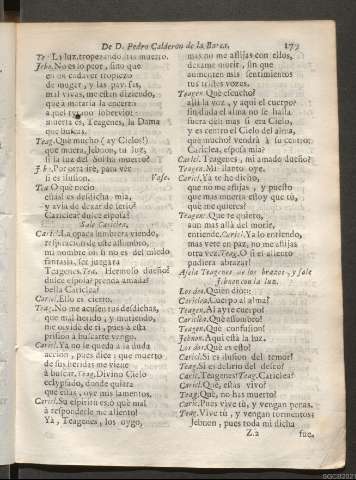 De D. Pedro Calderon de la Barca. 179
Te La luz, tropezando has muerto.
Jebn. No es lo peor, sino que
en un cadaver tropiezo
de muger, y las paveſas,
mal vivas, me eſtàn diziendo,
que à matarla la encerrò
aquel tyrano ſobervio:
muerta es, Teagenes, la Dama
que buſcas.
Teag. Què mucho (ay Cielos!)
que muera, Jebnon, tu luz,
ſi la luz del Sol ha muerto?
Jebn. Por otra irè, para vèr
ſi es iluſion. Vaſe.
Tea O què necio
eſtàs! es deſdicha mia,
y avia de dexar de ſerlo?
Cariclea? dulce eſpoſa?
Sale Cariclea.
Caric. La opaca lumbrera viendo,
reſpiracion de eſte aſſombro,
mi nombre oì: ſi no es del miedo
fantasia, ſer juzgara
Teagenes. Tea. Hermoſo dueño!
dulce eſpoſa! prenda amada!
bella Cariclea!
Caricl. Ello es cierto.
Teag. No me acuſen tus deſdichas,
que mal herido, y muriendo,
me olvidè de ti, pues à eſta
priſion à buſcarte vengo.
Caricl. Ya no le queda à la duda
accion, pues dice; que muerto
de ſus heridas me viene
à buſcar. Teag. Divino Cielo
eclyptado, donde quiera
que eſtàs, oye mis lamentos.
Caricl. Su eſpiritu es, ò què mal
à reſponderle me aliento!
Ya, Teagenes, los oygo,
mas no me aflijas con ellos,
dexame morir, ſin que
aumenten mis ſentimientos
tus triſtes vozes.
Teagen. Què eſcucho?
allì la voz, y aqui el cuerpo?
ſin duda el alma no ſe halla
fuera de ti mas ſi era Cielo,
y es centro el Cielo del alma,
què mucho? vendrà à ſu centro.
Cariclea, eſpoſa mia?
Caricl. Teagenes, mi amado dueño?
Teagen. Mi llanto oye.
Caricl. Yà te he dicho,
que no me aflijas, y pueſto
que mas muerta eſtoy que tù,
què me quieres?
Teagen. Que te quiero,
aun mas allà del morir,
entiende. Caricl. Ya lo entiendo,
mas vete en paz, no me aflijas
otra vez. Teag. O ſi el aliento
pudiera abrazar!
Aſela Teagenes de los brazos, y ſale
Jebnon con la luz.
Los dos. Quien dixo:
Cariclea. Cuerpo al alma?
Teagen. Al ayre cuerpo?
Cariclea. Què aſſombro?
Teagen. Què confuſion!
Jebnon. Aqui eſtà la luz.
Los dos. Què es eſto?
Caricl. Si es iluſion del temor?
Teag. Si es delirio del deſeo?
Caric. Teagenes? Teag. Cariclea?
Caricl. Què, eſtàs vivo?
Teag. Què, no has muerto?
Caric. Pues vive tù, y vengan penas.
Teag. Vive tù, y vengan tormentos:
Jebnon, pues toda mi dicha
Z.2 fue,
SGCB2021